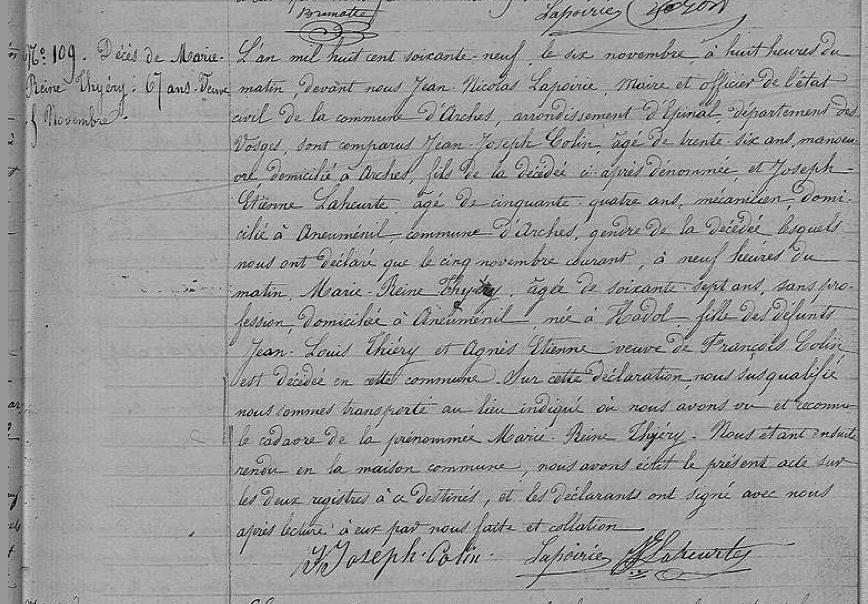 Brumatte
Lapoirie
No 109. Décès de Marie-
Reine Thyéry: 67 ans. Veuve
5 Novembre.
L'an mil huit cent soixante-neuf, le six novembre, à huit heures du
matin, devant nous Jean-Nicolas Lapoirie, Maire et officier de l'état
civil de la commune d'Arches, arrondissement d'Epinal, département des
Vosges, sont comparus Jean-Joseph Colin, âgé de trente-six ans, manoeu-
vre domicilié à Arches, fils de la décédée ci-après dénommée, et Joseph-
Étienne Laheurte, âgé de cinquante-quatre ans, mécanicien, domi-
cilié à Aneuménil, commune d'Arches, gendre de la décédée lesquels
nous ont déclaré que le cinq novembre courant, à neuf heures du
matin, Marie-Reine Thyéry, âgée de soixante-sept ans, sans pro-
fession, domiciliée à Aneuménil, née à Hadol, fille des défunts
Jean-Louis Thiéry et Agnès Etienne veuve de François Colin
est décédée en cette commune. Sur cette déclaration, nous susqualifié
nous sommes transporté au lieu indiqué où nous avons vu et reconnu
le cadavre de la prénommée Marie-Reine Thyéry. Nous étant ensuite
rendu en la maison commune, nous avons écrit le présent acte sur
les deux registres à ce destinés, et les déclarants ont signé avec nous
après lecture à eux par nous faite et collation
J Joseph-Colin. Lapoirie JE Laheurte